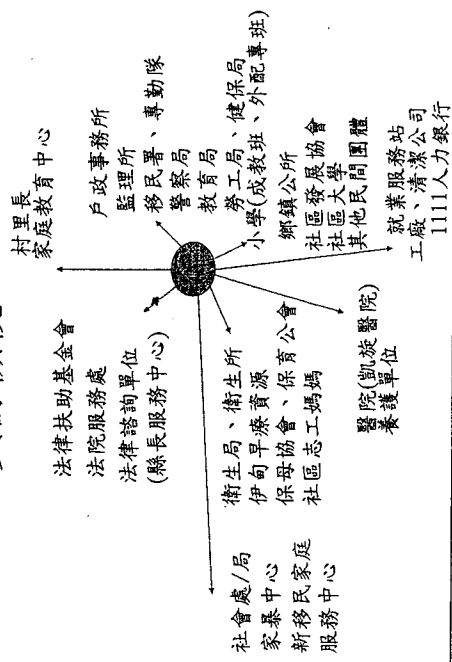 村里長
家庭教育中心
戶政事務所
監理所
移民署、專勤隊
警察局
教育局
勞工局、健保局
小學(成教班、外配專班)
鄉鎮公所
社區發展協會
社區大學
其他民間團體
就業服務站
工廠、清潔公司
1111人力銀行
醫院(凱旋醫院)
養護單位
衛生局、衛生所
伊甸早療資源
保母協會、保育公會
社區志工媽媽
社會處/局
家暴中心
新移民家庭
服務中心
法律扶助基金會
法院服務處
法律諮詢單位
(縣長服務中心)